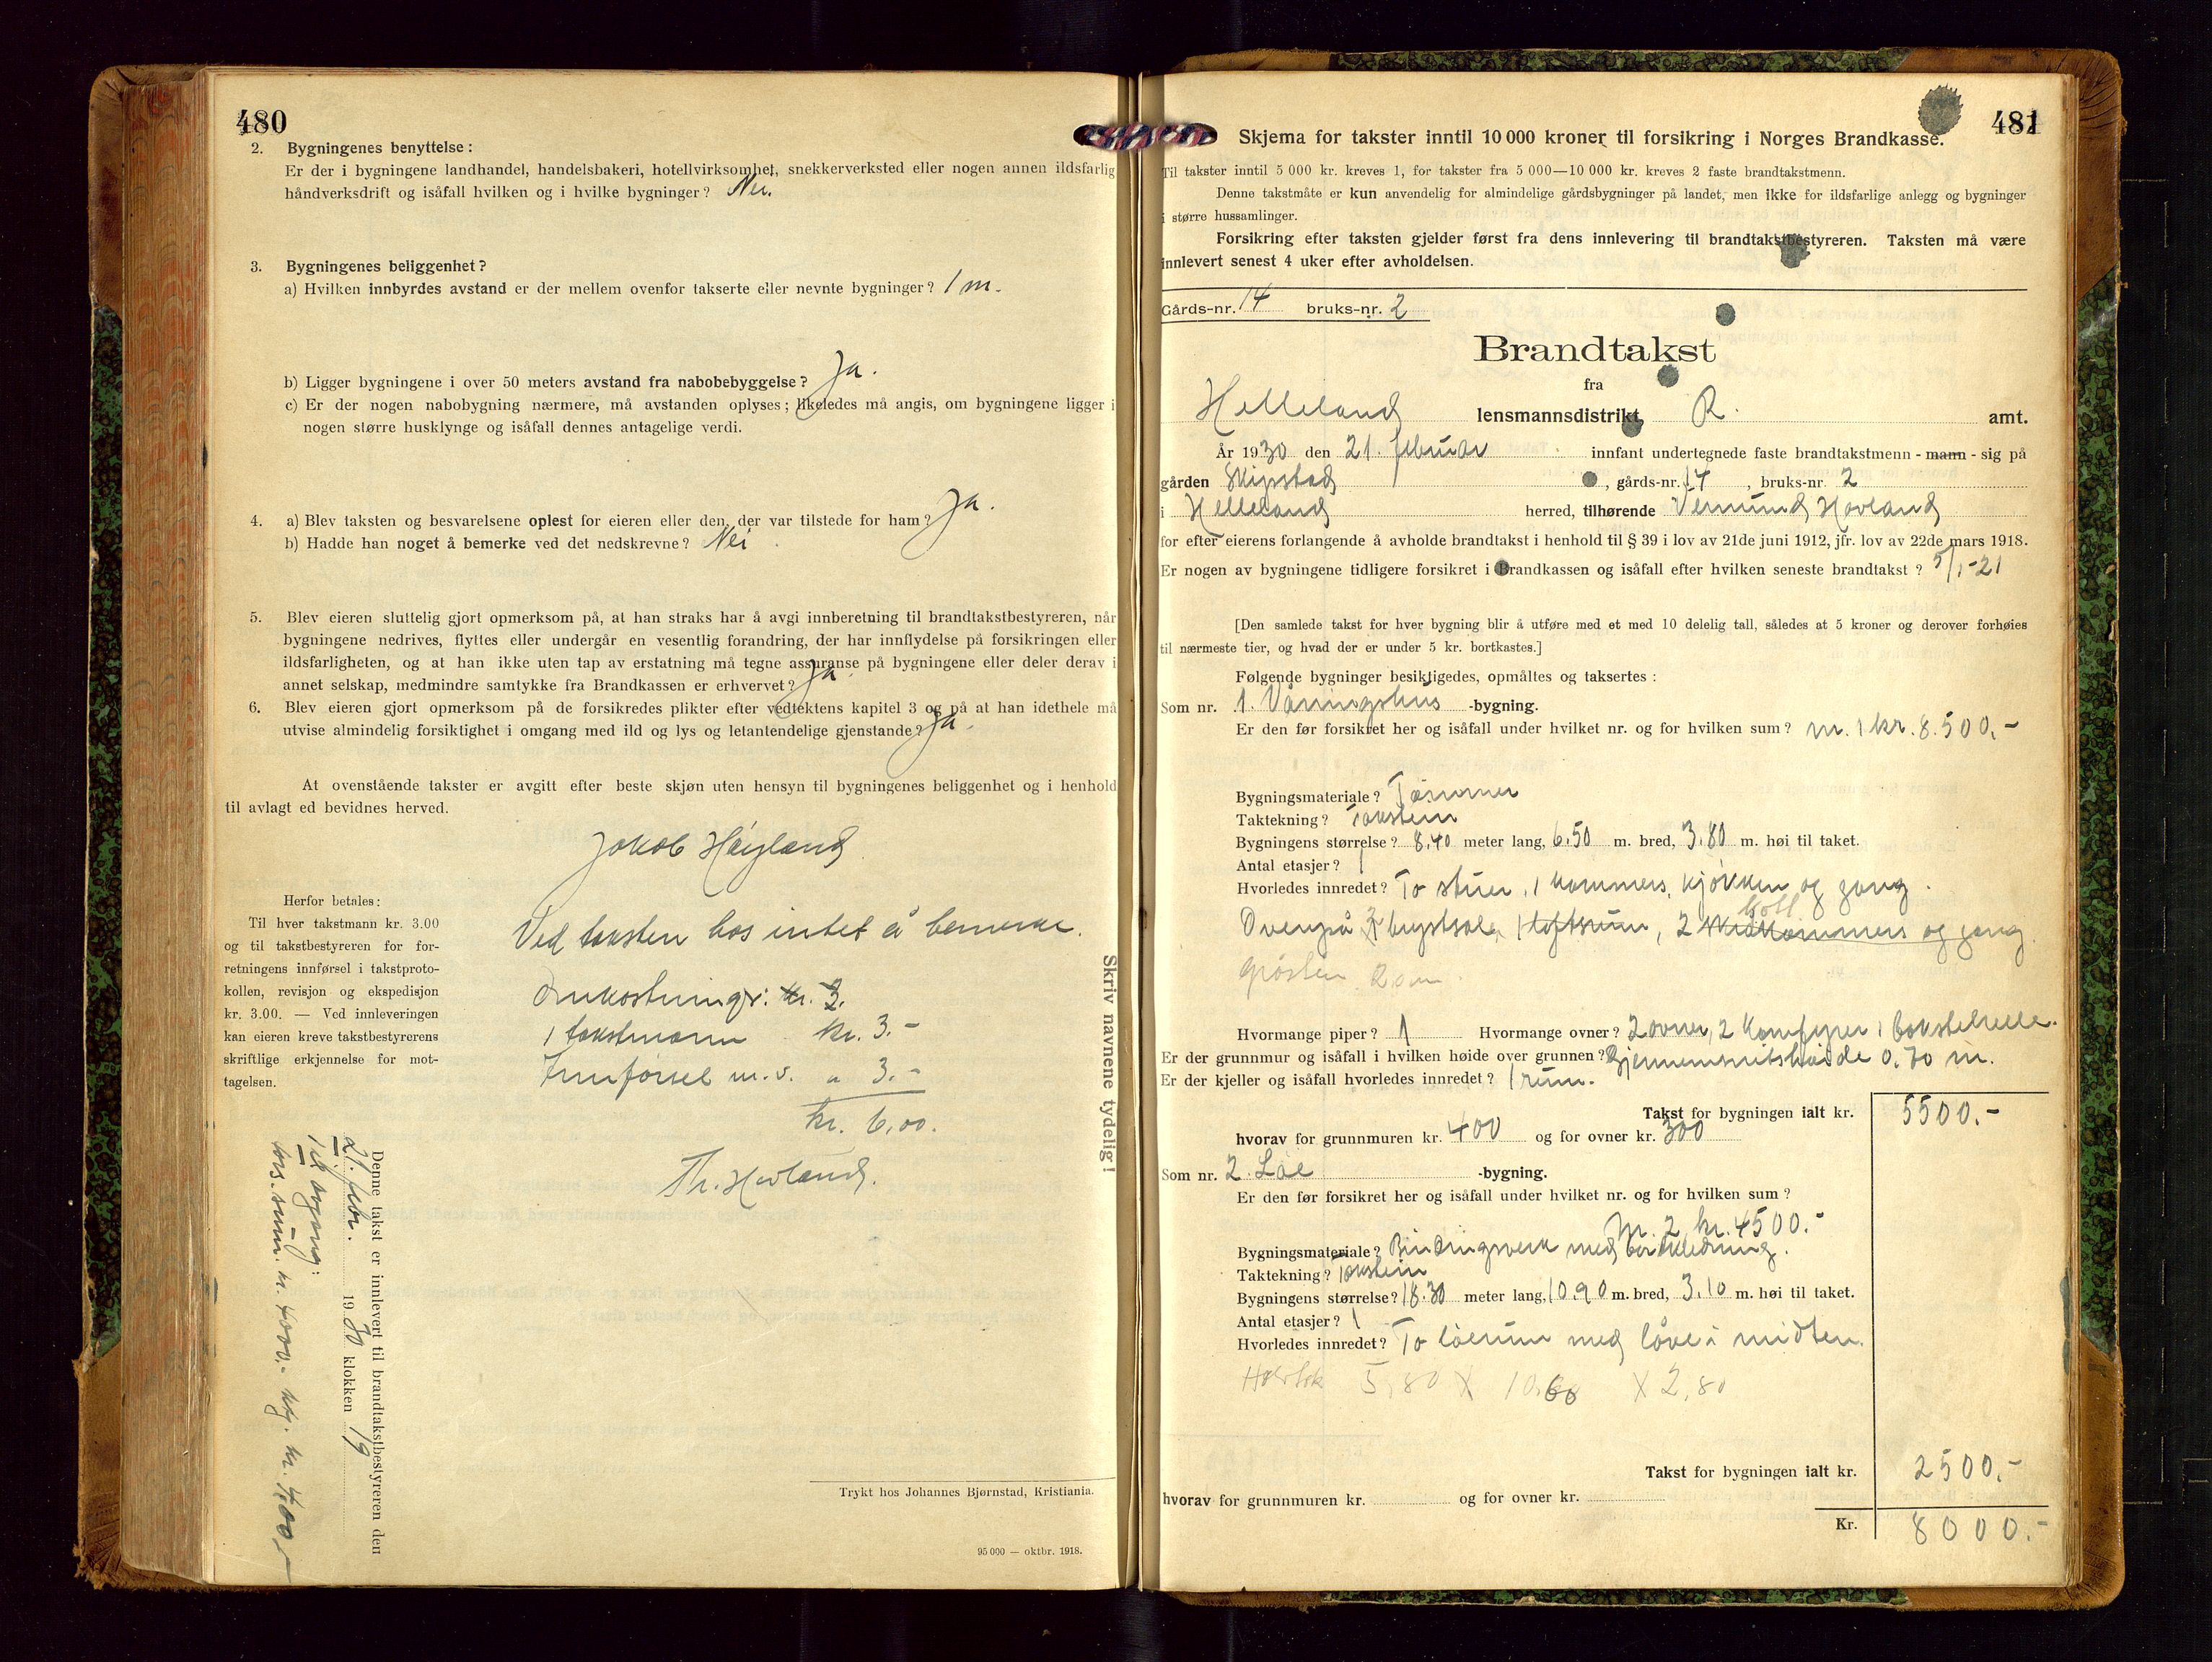 480
2. Bygningenes benyttelse:
Er der i bygningene landhandel, handelsbakeri, hotellvirksomhet, snekkerverksted eller nogen annen ildsfarlig
håndverksdrift og isåfall hvilken og i hvilke bygninger? Nei.
3. Bygningenes beliggenhet?
a) Hvilken innbyrdes avstand er der mellem ovenfor takserte eller nevnte bygninger? 1 m.
b) Ligger bygningene i over 50 meters avstand fra nabobebyggelse? Ja.
c) Er der nogen nabobygning nærmere, må avstanden oplyses; likeledes må angis, om bygningene ligger i
nogen større husklynge og isåfall dennes antagelige verdi.
4. a) Blev taksten og besvarelsene oplest for eieren eller den, der var tilstede for ham? Ja.
b) Hadde han noget å bemerke ved det nedskrevne? Nei
5. Blev eieren sluttelig gjort opmerksom på, at han straks har å avgi innberetning til brandtakstbestyreren, når
bygningene nedrives, flyttes eller undergår en vesentlig forandring, der har innflydelse på forsikringen eller
ildsfarligheten, og at han ikke uten tap av erstatning må tegne assuranse på bygningene eller deler derav i
annet selskap, medmindre samtykke fra Brandkassen er erhvervet? Ja.
6. Blev eieren gjort opmerksom på de forsikredes plikter efter vedtektens kapitel 3 og på at han idethele må
utvise almindelig forsiktighet i omgang med ild og lys og letantendelige gjenstande? Ja.
At ovenstående takster er avgitt efter beste skjøn uten hensyn til bygningenes beliggenhet og i henhold
til avlagt ed bevidnes herved.
Jakob Høyland
Herfor betales:
Til hver takstmann kr. 3.00
og til takstbestyreren for for-
retningens innførsel i takstproto-
kollen, revisjon og ekspedisjon
kr. 3.00. — Ved innleveringen
kan eieren kreve takstbestyrerens
skriftlige erkjennelse for mot-
tagelsen.
Ved taksten has intet å bemerke.
Omkostninger: kr. 3.
1 takstmann kr. 3.-
Innførsel m.v. " 3.-
kr. 6,00.
Th. Hovland.
Skriv navnene tydelig!
Denne takst er innlevert til brandtakstbestyreren den
21. febr. 1930 klokken 19
Til avgang:
fors.sum. kr. 4000.- kr. 400.-
Trykt hos Johannes Bjørnstad, Kristiania.
95 000 — oktbr. 1918.
481
Skjema for takster inntil 10 000 kroner til forsikring i Norges Brandkasse.
Til takster inntil 5 000 kr. kreves 1, for takster fra 5 000—10 000 kr. kreves 2 faste brandtakstmenn.
Denne takstmåte er kun anvendelig for almindelige gårdsbygninger på landet, men ikke for ildsfarlige anlegg og bygninger
i større hussamlinger.
Forsikring efter taksten gjelder først fra dens innlevering til brandtakstbestyreren. Taksten må være
innlevert senest 4 uker efter avholdelsen.
Gårds-nr. 14 bruks-nr. 2
Brandtakst
fra
Helleland lensmannsdistrikt, R. amt.
År 1930 den 21. februar innfant undertegnede faste brandtakstmenn - mann - sig på
gården Skipstad, gårds-nr. 14, bruks-nr. 2
i Helleland herred, tilhørende Vermund Hovland
for efter eierens forlangende å avholde brandtakst i henhold til § 39 i lov av 21de juni 1912, jfr. lov av 22de mars 1918.
Er nogen av bygningene tidligere forsikret i Brandkassen og isåfall efter hvilken seneste brandtakst? 5/1-21
[Den samlede takst for hver bygning blir å utføre med et med 10 delelig tall, således at 5 kroner og derover forhøies
til nærmeste tier, og hvad der er under 5 kr. bortkastes.]
Følgende bygninger besiktigedes, opmåltes og taksertes:
Som nr. 1. Våningshus -bygning.
Er den før forsikret her og isåfall under hvilket nr. og for hvilken sum? nr. 1 kr. 8.500,-
Bygningsmateriale? Tømmer
Taktekning? Takstein
Bygningens størrelse? 8,40 meter lang, 6,50 m. bred, 3,80 m. høi til taket.
Antal etasjer? 1
Hvorledes innredet? To stuer, 1 kammers, kjøkken og gang.
Ovenpå 3 brystsale, 1 loftsrum, 2 kott og gang.
Hvormange piper? 1 Hvormange ovner? 2 ovner, 2 komfyrer 1 bakstehelle.
Er der grunnmur og isåfall i hvilken høide over grunnen? Gjennemsnitshøide 0.70 m.
Er der kjeller og isåfall hvorledes innredet? 1 rum.
Takst for bygningen ialt kr. 5500.-
hvorav for grunnmuren kr. 400 og for ovner kr. 300
Som nr. 2. Løe -bygning.
Er den før forsikret her og isåfall under hvilket nr. og for hvilken sum?
Nr. 2, kr. 4500.-
Bygningsmateriale? Bindingverk med bordkledning.
Taktekning? Takstein
Bygningens størrelse? 18.30 meter lang, 10.90 m. bred, 3.10 m. høi til taket.
Antal etasjer? 1
Hvorledes innredet? To løerum med låve i midten.
5,80 X 10,60 X 2,80
Takst for bygningen ialt kr. 2500.-
hvorav for grunnmuren kr. og for ovner kr.
Kr. 8000.-